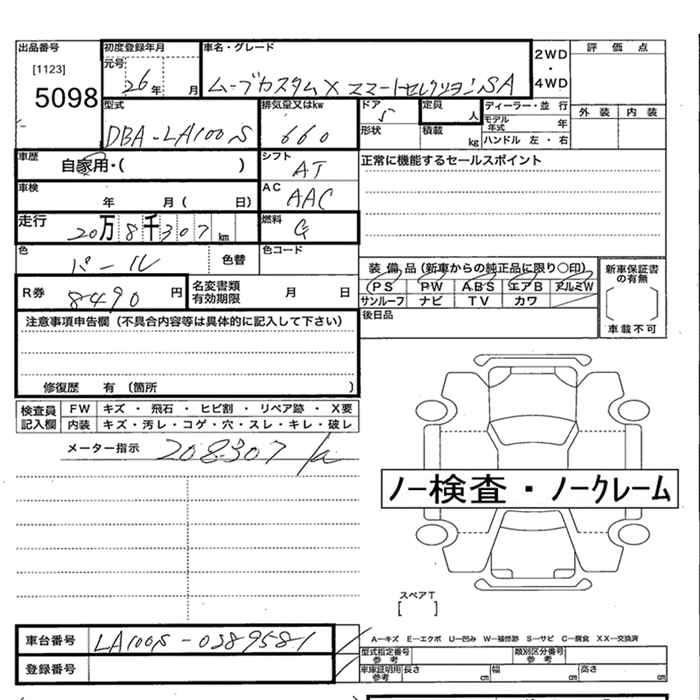 出品番号
[1123]
5098
初度登録年月
元号
26年 月
車名・グレード
ムーブカスタムX スマートセレクションSA
2WD
・
4WD
評価点
外装 内装
型式
DBA-LA100S
排気量又はkw
660
ドア
5
形状
定員
人
積載
kg
ディーラー・並 行
モデル年式 年
ハンドル 左・右
車歴
自家用・( )
シフト
AT
正常に機能するセールスポイント
車検
年 月( 日)
AC
AAC
走行
20万8千307km
燃料
G
色
パール
色替
色コード
R券
8490円
名変書類
有効期限
月 日
装備品(新車からの純正品に限り○印)
PS PW ABS エアB アルミW
サンルーフ ナビ TV カワ
新車保証書
の有無
車載不可
後日品
注意事項申告欄(不具合内容等は具体的に記入して下さい)
修復歴 有(箇所 )
検査員
記入欄
FW キズ・飛石・ヒビ割・リペア跡・X要
内装 キズ・汚レ・コゲ・穴・スレ・キレ・破レ
メーター指示 208307k
ノー検査・ノークレーム
スペアT
[ ]
車台番号
LA100S-0389581
登録番号
A－キズ E－エクボ U－凹み W－補修跡 S－サビ C－腐食 XX－交換済
型式指定番号
参考
類別区分番号
参考
車庫証明用
参考
長さ cm 幅 cm 高さ cm